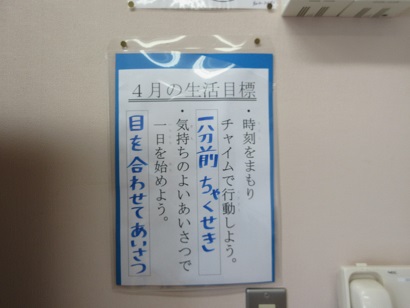 ４月の生活目標
・時刻をまもり
チャイムで行動しよう。
一分前ちゃくせき
・気持ちのよいあいさつで
一日を始めよう。
目を合わせてあいさつ